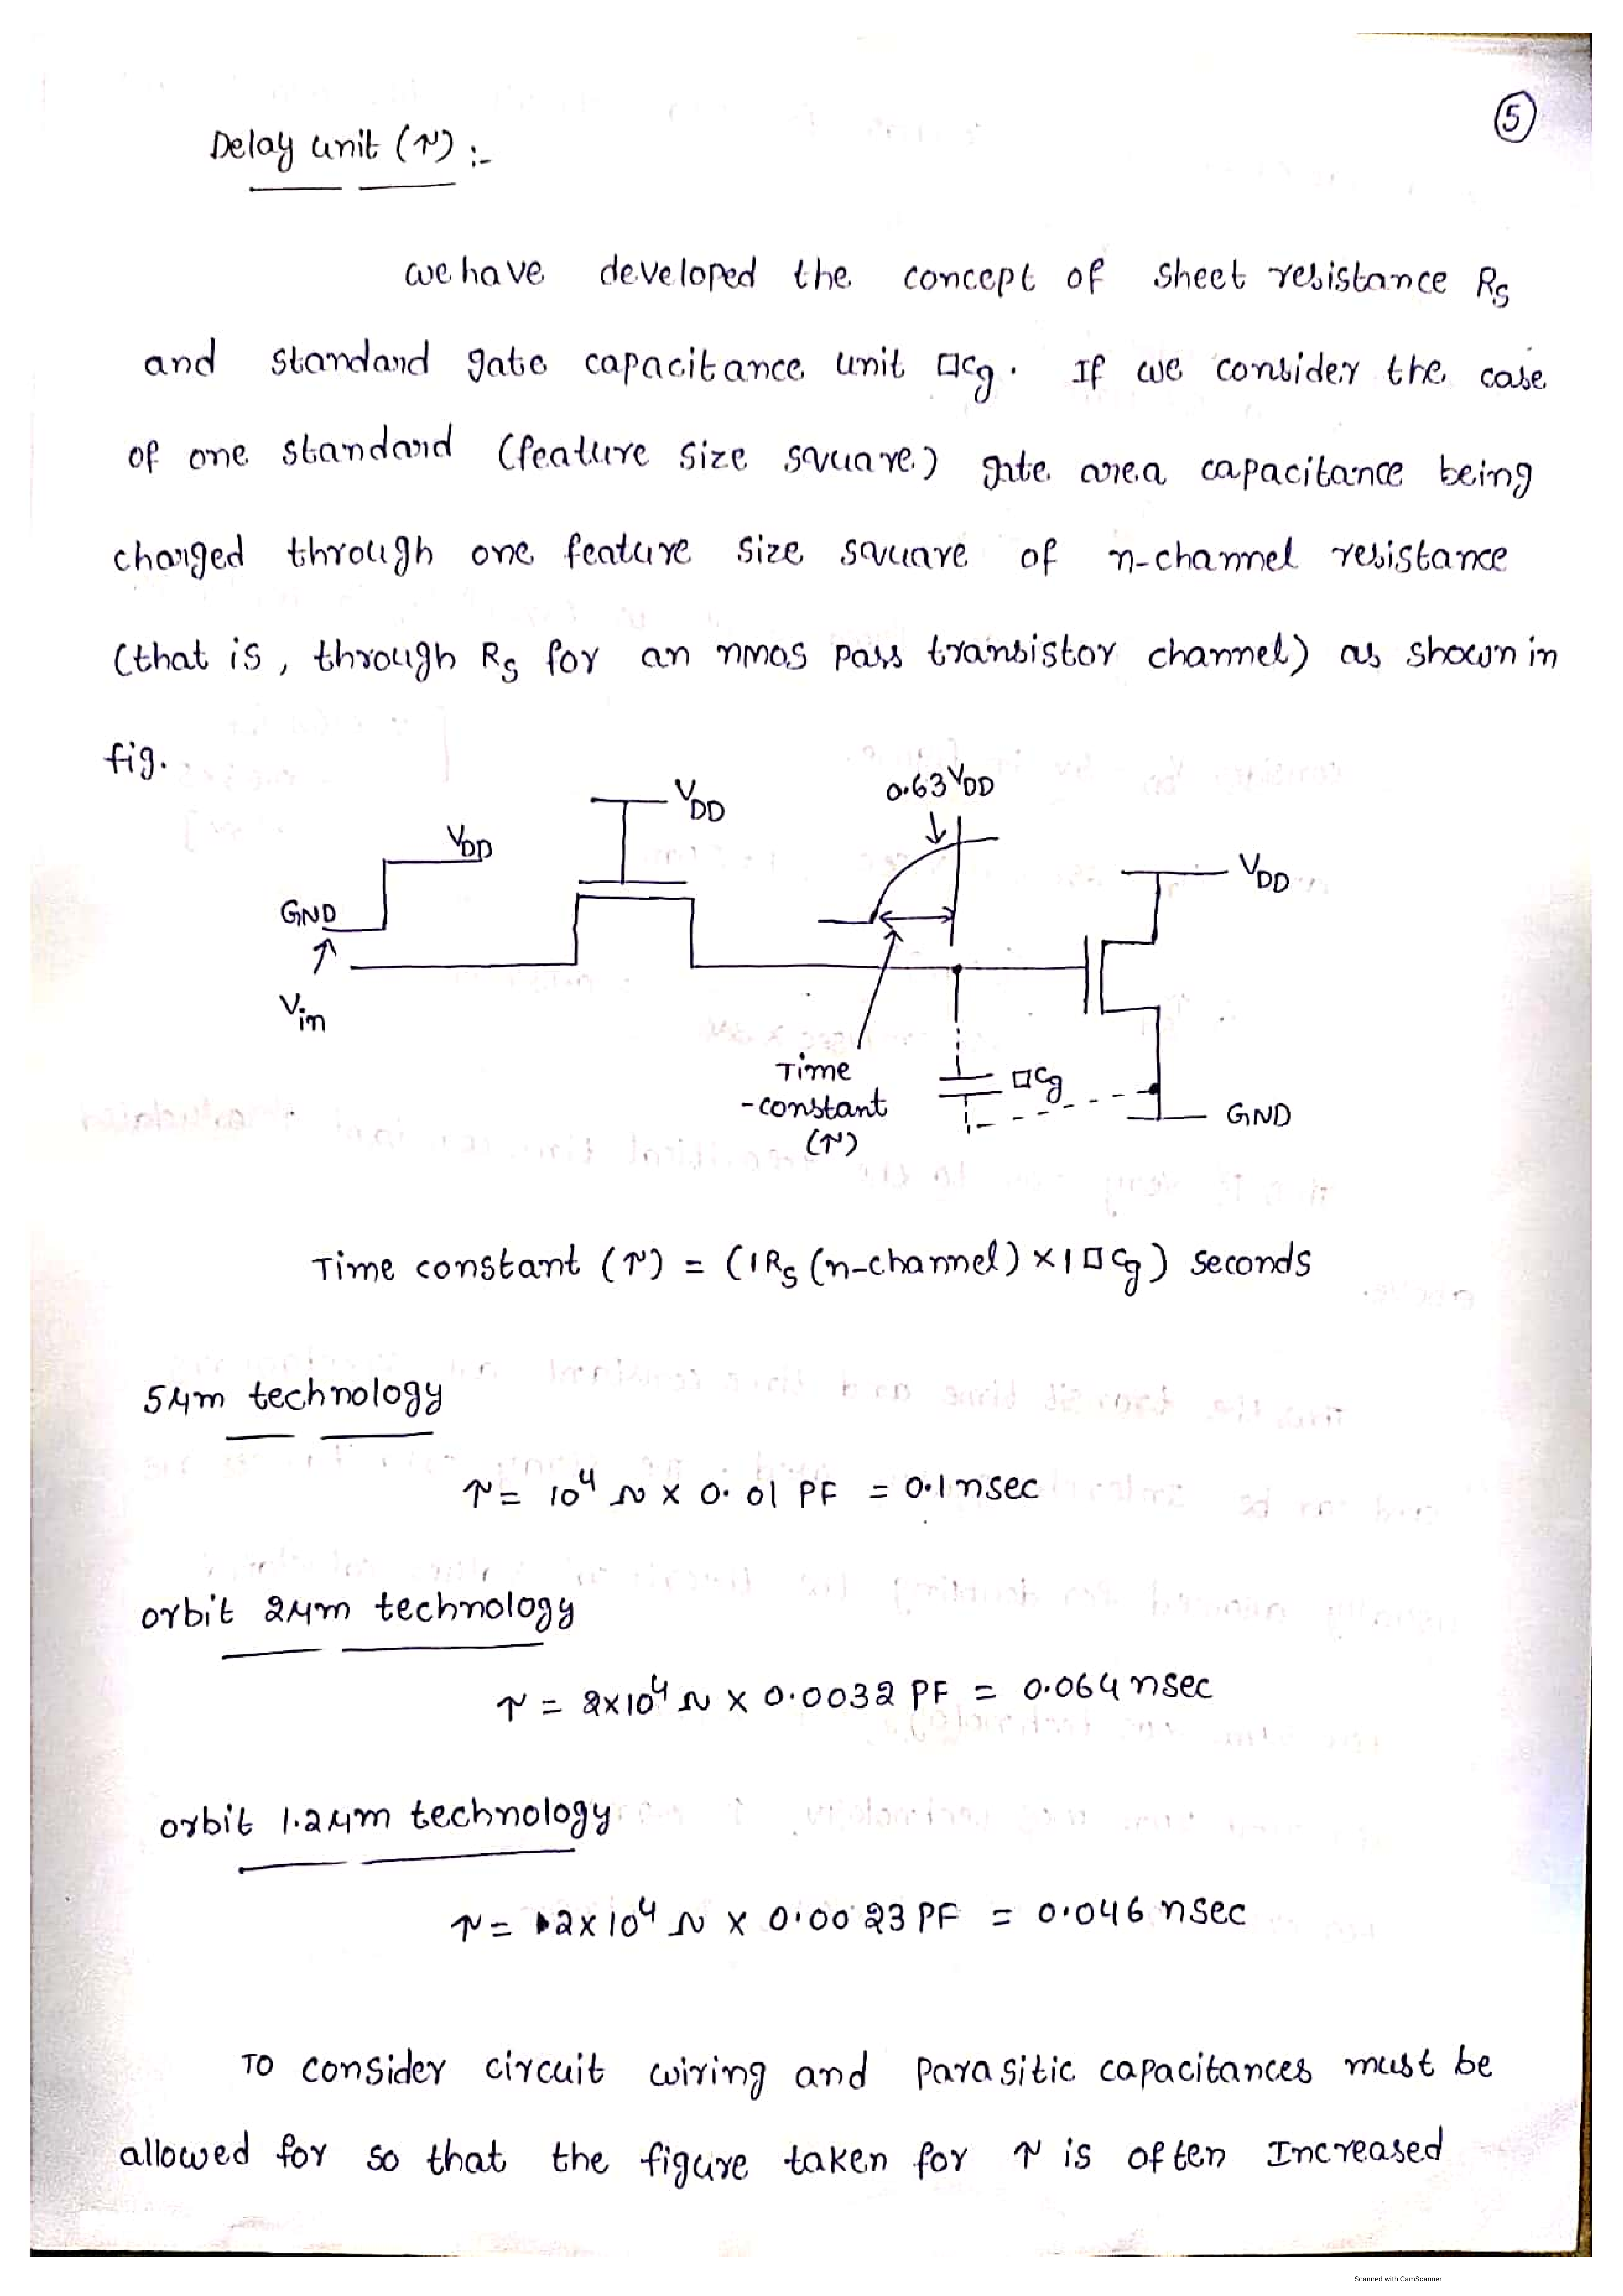 5
Delay unit (τ) :-
we have developed the concept of sheet resistance Rs
and standard gate capacitance unit □Cg. If we consider the case
of one standard (feature size square) gate area capacitance being
charged through one feature size square of n-channel resistance
(that is, through Rs for an nmos pass transistor channel) as shown in
fig.
VDD
0.63VDD
VDD
VDD
GND
Vin
Time
-constant
(τ)
□Cg
GND
Time constant (τ) = (1Rs (n-channel) × 1□Cg) seconds
5μm technology
τ = 10⁴ Ω × 0.01 PF = 0.1nsec
orbit 2μm technology
τ = 2×10⁴ Ω × 0.0032 PF = 0.064 nsec
orbit 1.2μm technology
τ = 2×10⁴ Ω × 0.0023 PF = 0.046 nsec
To consider circuit wiring and parasitic capacitances must be
allowed for so that the figure taken for τ is often Increased
Scanned with CamScanner